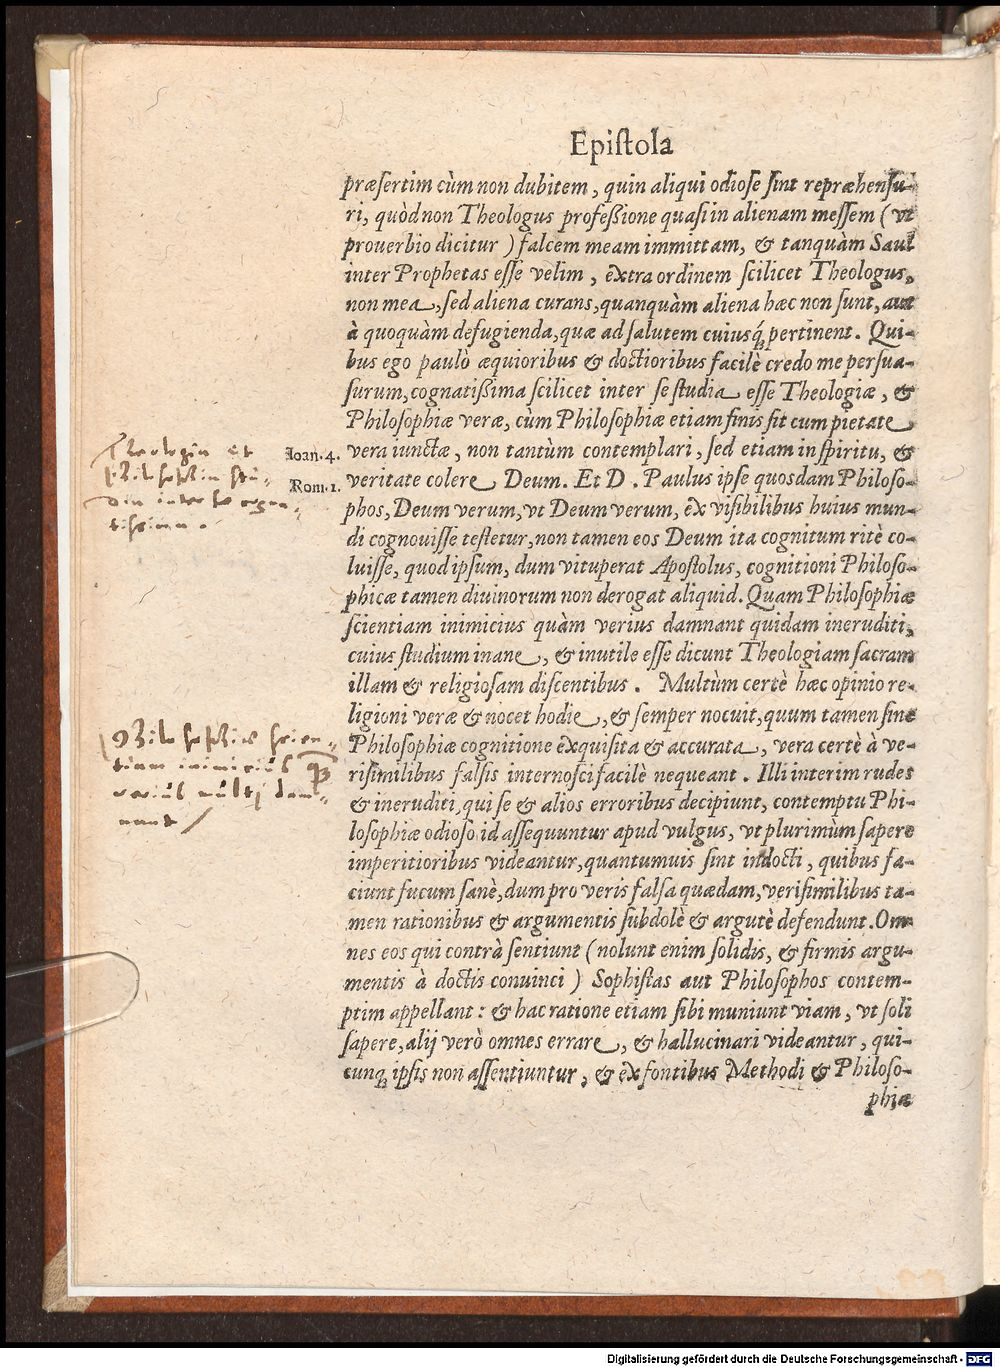 Epiſtola
præſertim cùm non dubitem, quin aliqui odioſe ſint repræhenſu-
ri, quòd non Theologus profeßione quaſi in alienam meſſem (vt
prouerbio dicitur) falcem meam immittam, & tanquàm Saul
inter Prophetas eſſe velim, extra ordinem ſcilicet Theologus,
non mea, ſed aliena curans, quanquàm aliena hæc non ſunt, aut
à quoquàm defugienda, quæ ad ſalutem cuiusq́; pertinent. Qui-
bus ego paulò æquioribus & doctioribus facilè credo me perſua-
ſurum, cognatißima ſcilicet inter ſe ſtudia eſſe Theologiæ, &
Philoſophiæ veræ, cùm Philoſophiæ etiam finis ſit cum pietate
Ioan. 4. vera iunctæ, non tantùm contemplari, ſed etiam in ſpiritu, &
Rom. 1. veritate colere Deum. Et D. Paulus ipſe quosdam Philoſo-
phos, Deum verum, vt Deum verum, ex viſibilibus huius mun-
di cognouiſſe teſtetur, non tamen eos Deum ita cognitum ritè co-
luiſſe, quod ipſum, dum vituperat Apoſtolus, cognitioni Philoſo-
phicæ tamen diuinorum non derogat aliquid. Quam Philoſophiæ
ſcientiam inimicius quàm verius damnant quidam ineruditi,
cuius ſtudium inane, & inutile eſſe dicunt Theologiam ſacram
illam & religioſam diſcentibus. Multùm certè hæc opinio re-
ligioni veræ & nocet hodie, & ſemper nocuit, quum tamen ſine
Philoſophiæ cognitione exquiſita & accurata, vera certè à ve-
riſimilibus falſis internoſci facilè nequeant. Illi interim rudes
& ineruditi, qui ſe & alios erroribus decipiunt, contemptu Phi-
loſophiæ odioſo id aſſequuntur apud vulgus, vt plurimùm ſapere
imperitioribus videantur, quantumuis ſint indocti, quibus fa-
ciunt fucum ſanè, dum pro veris falſa quædam, veriſimilibus ta-
men rationibus & argumentis ſubdolè & argutè defendunt. Om-
nes eos qui contrà ſentiunt (nolunt enim ſolidis, & firmis argu-
mentis à doctis conuinci) Sophiſtas aut Philoſophos contem-
ptim appellant: & hac ratione etiam ſibi muniunt viam, vt ſoli
ſapere, alij verò omnes errare, & hallucinari videantur, qui-
cunq; ipſis non aſſentiuntur, & ex fontibus Methodi & Philoſo-
phiæ
Theologia et
philosophia stu-
dia inter se cogna-
tissima.
Philosophiae scien-
tiam inimiciùs q̃
veriùs multj dam-
nant
Digitalisierung gefördert durch die Deutsche Forschungsgemeinschaft - DFG